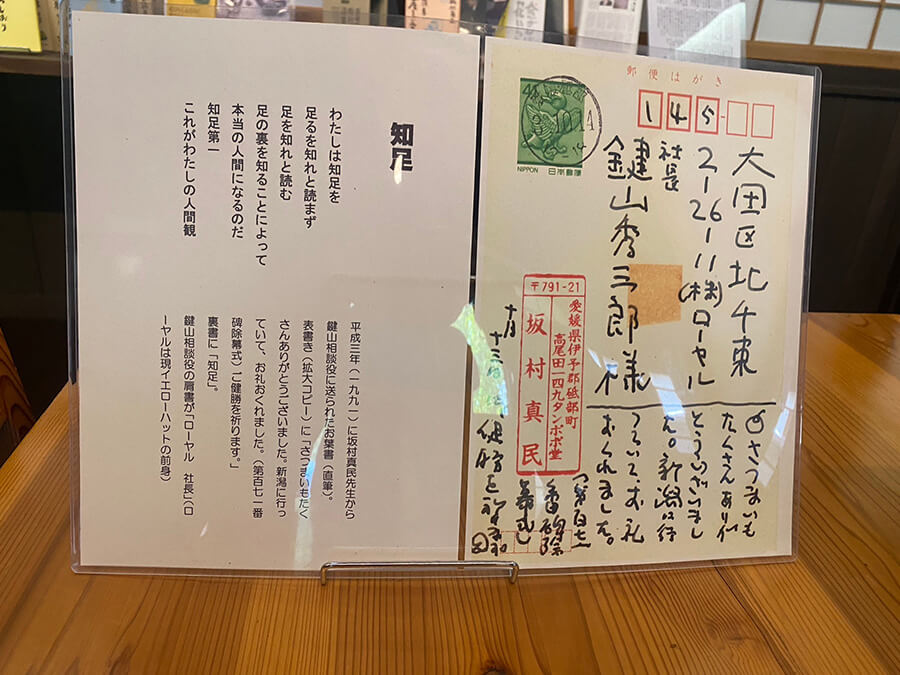 郵便はがき
145
大田区北千束
2-26-11(株)ローヤル
社長
鍵山秀三郎様
41
NIPPON 日本郵便
〒791-21
愛媛県伊予郡砥部町
高尾田一四九タンポポ堂
坂村真民
さつまいも
たくさんありが
とうございまし
た。新潟に行
っていて、お礼
おくれました。
(第百七一
番碑除
幕式)
健勝を祈
十月
十三日
知足
わたしは知足を
足るを知れと読まず
足を知れと読む
足の裏を知ることによって
本当の人間になるのだ
知足第一
これがわたしの人間観
平成三年(一九九一)に坂村真民先生から
鍵山相談役に送られたお葉書(直筆)。
表書き(拡大コピー)に「さつまいもたく
さんありがとうございました。新潟に行っ
ていて、お礼おくれました。(第百七一番
碑除幕式)ご健勝を祈ります。」
裏書に「知足」。
鍵山相談役の肩書が「ローヤル 社長」(ロ
ーヤルは現イエローハットの前身)